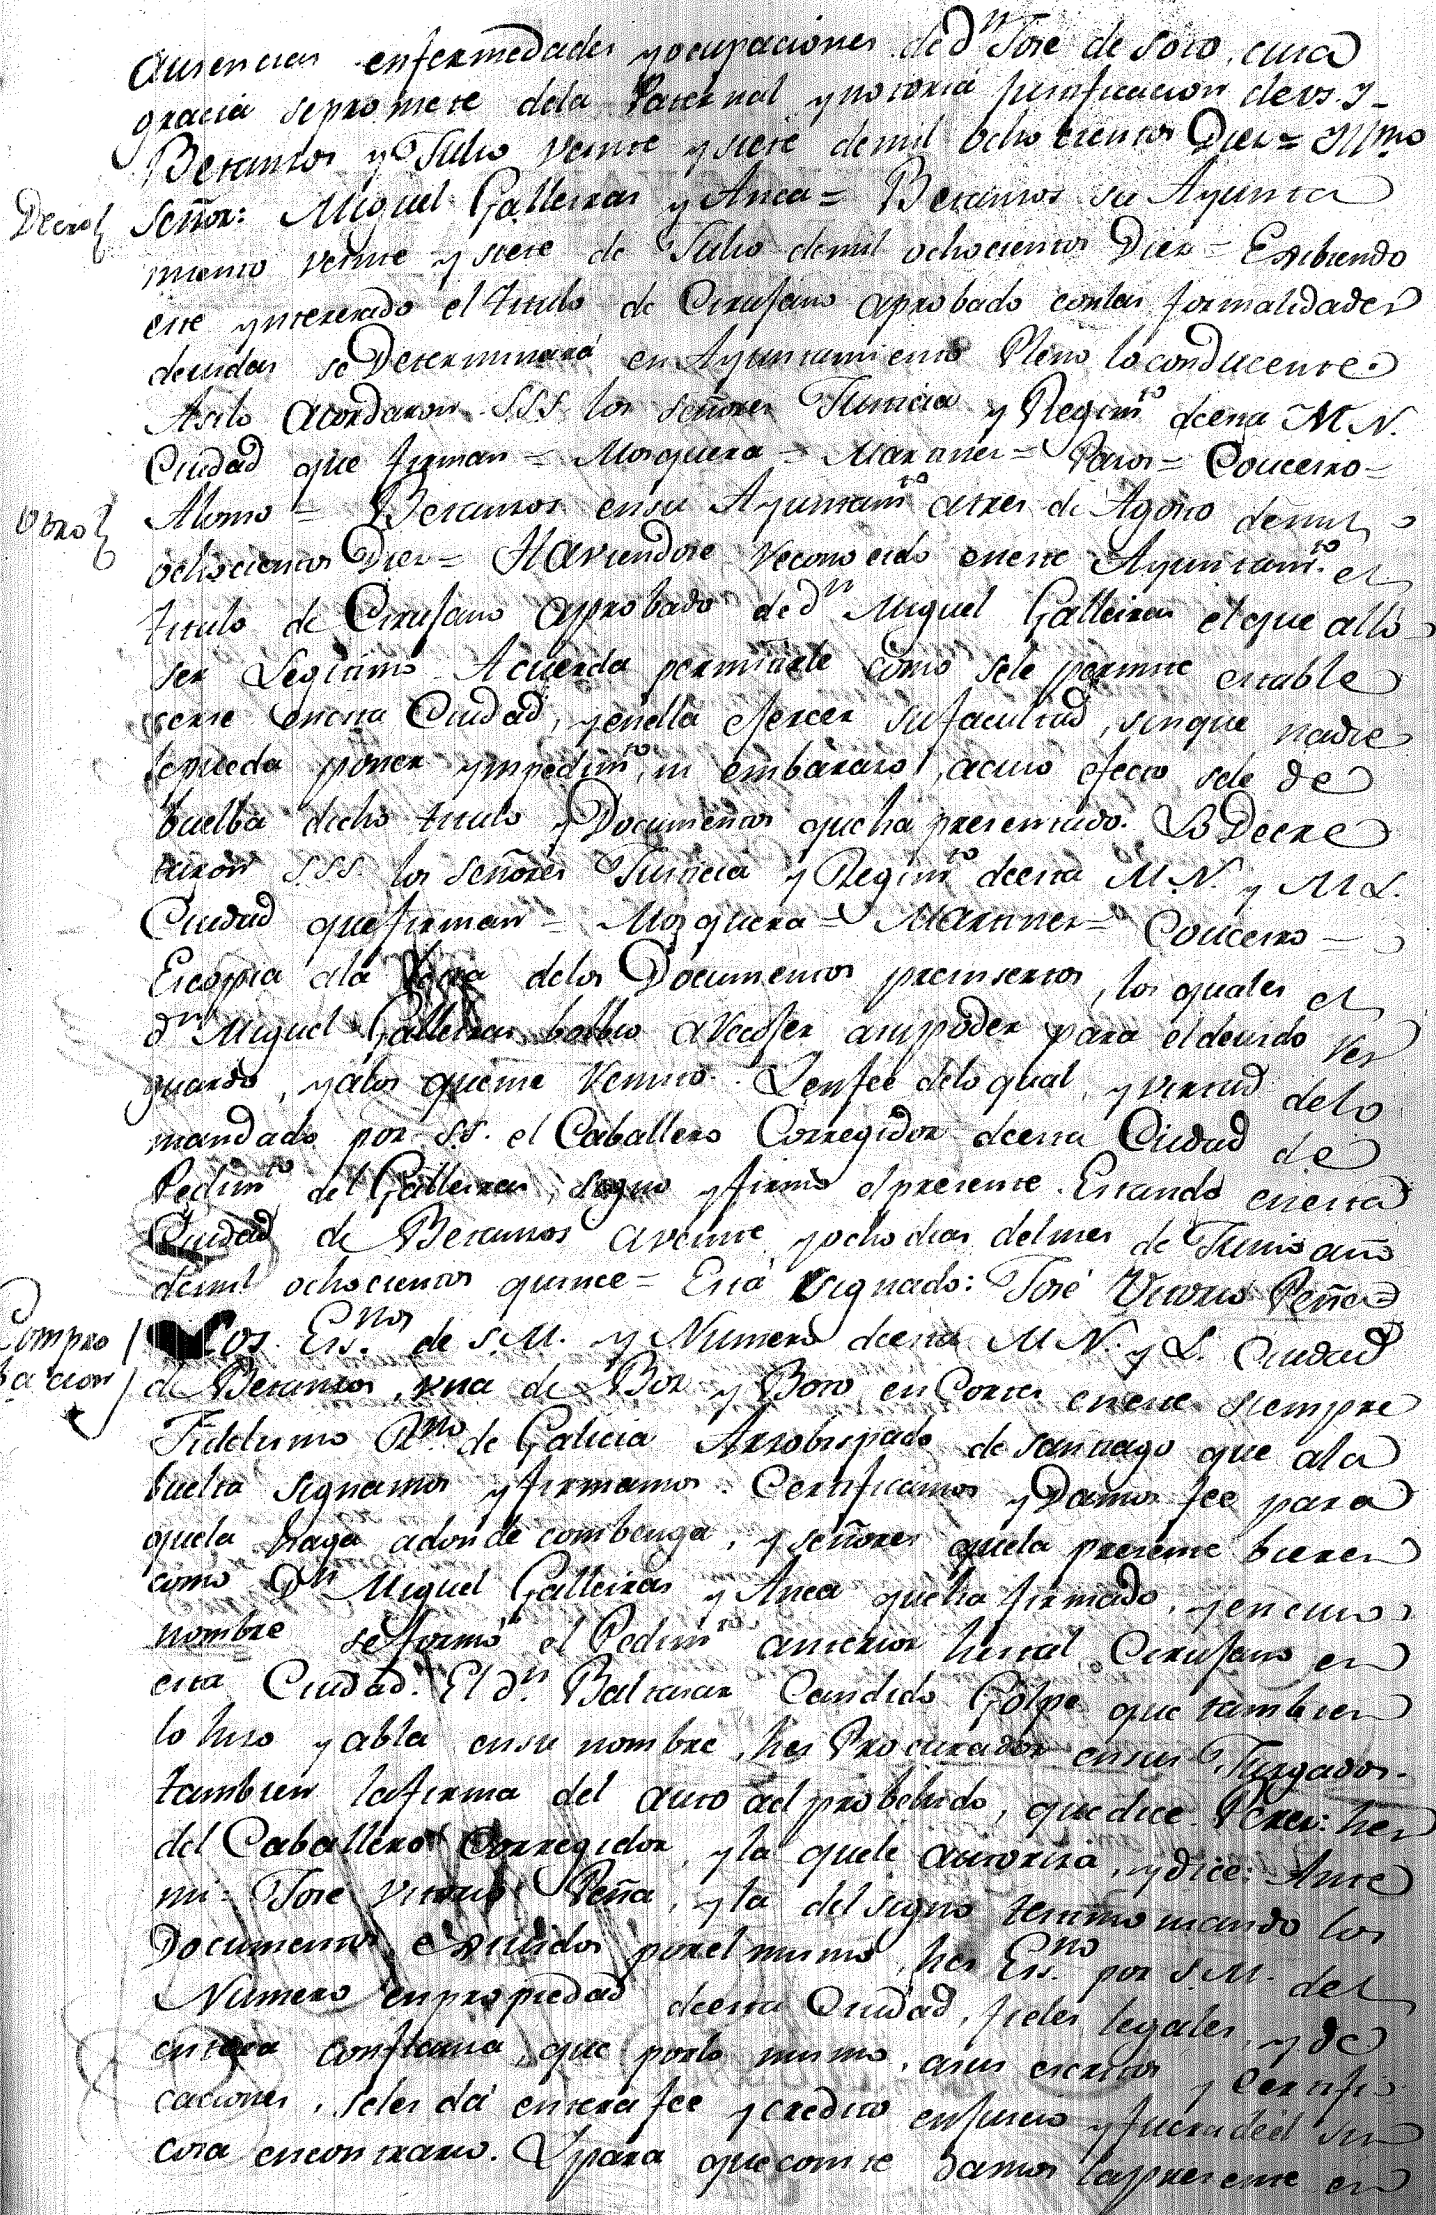 ausencias enfermedades y ocupaciones de dn José de Soto, cuia
gracia se promete dela Paternal y notoria justificacion de vs. y
Betanzos y Julio veinte y siete de mil ocho cientos Diez = Yllmo
Decreto
señor: Miguel Galleiras y Anca = Betanzos su Ayunta
miento veinte y siete de Julio de mil ochocientos Diez = Exibiendo
este ynteresado el titulo de Cirujano aprobado con las formalidades
devidas se Determinará en Ayuntamiento Pleno lo conducente.
Asi lo acordaron S.S.S. los señores Justicia y Regimto de esta M.N.
Ciudad que firman = Mosquera = Martinez = Pazos = Couceiro =
Otro
Alonso = Betanzos en su Ayuntamto a tres de Agosto de mil
ochocientos Diez = Haviendose reconocido en este Ayuntamto el
titulo de Cirujano aprobado de dn Miguel Galleiras el que alló
ser Legitimo Acuerda permitirle como sele permite estable
cerse en esta Ciudad, y en ella ejercer su facultad, sin que nadie
le pueda poner ympedimto, ni embarazo, acuio efecto sele de
buelba dicho titulo y Documentos que ha presentado. Lo Decre
taron S.S.S. los señores Justicia y Regimto de esta M.N. y M.L.
Ciudad que firman = Mosquera = Martinez = Couceiro =
Es copia ala letra delos Documentos preinsertos, los quales el
dn Miguel Galleiras bolbio a recojer a su poder para el devido res
guardo, y alos que me remito. Y en fee delo qual, y virtud delo
mandado por S.S. el Caballero Corregidor de esta Ciudad de
Pedimto del Galleiras, signo y firmo el presente. Estando en esta
Ciudad de Betanzos a veinte y ocho dias del mes de Junio año
de mil ochocientos quince = Está signado: José Vitorio Peña =
Compro
bacion
Los Essnos de S.M. y Numero de esta M.N. y L. Ciudad
de Betanzos, una de Boz y Boto en Cortes en este siempre
Fidelisimo Rno de Galicia Arzobispado de Santiago que ala
buelta signamos y firmamos. Certificamos y Damos fee para
que la haga adonde combenga, y señores que la presente bieren
como Dn Miguel Galleiras y Anca que ha firmado, y en cuio
nombre se formó el Pedimto anterior hes tal Cirujano en
esta Ciudad. El dn Baltasar Candido Golpe que tambien
lo hizo y abla en su nombre, hes Procurador en sus Juzgados.
tambien la firma del auto ael probehido, que dice Perez: hes
del Caballero Corregidor, y la que le autoriza, y dice: Ante
mi: José Vitorio Peña, y la del signo testimoniando los
Documentos exividos por el mismo, hes Essno por S.M. del
Numero en propiedad de esta Ciudad, fieles legales, y de
entera confianza, que por lo mismo, a sus escritos y Certifi
caciones, seles dá entera fee y credito en juicio y fuera deel sin
cosa en contrario. Y para que conste damos la presente en